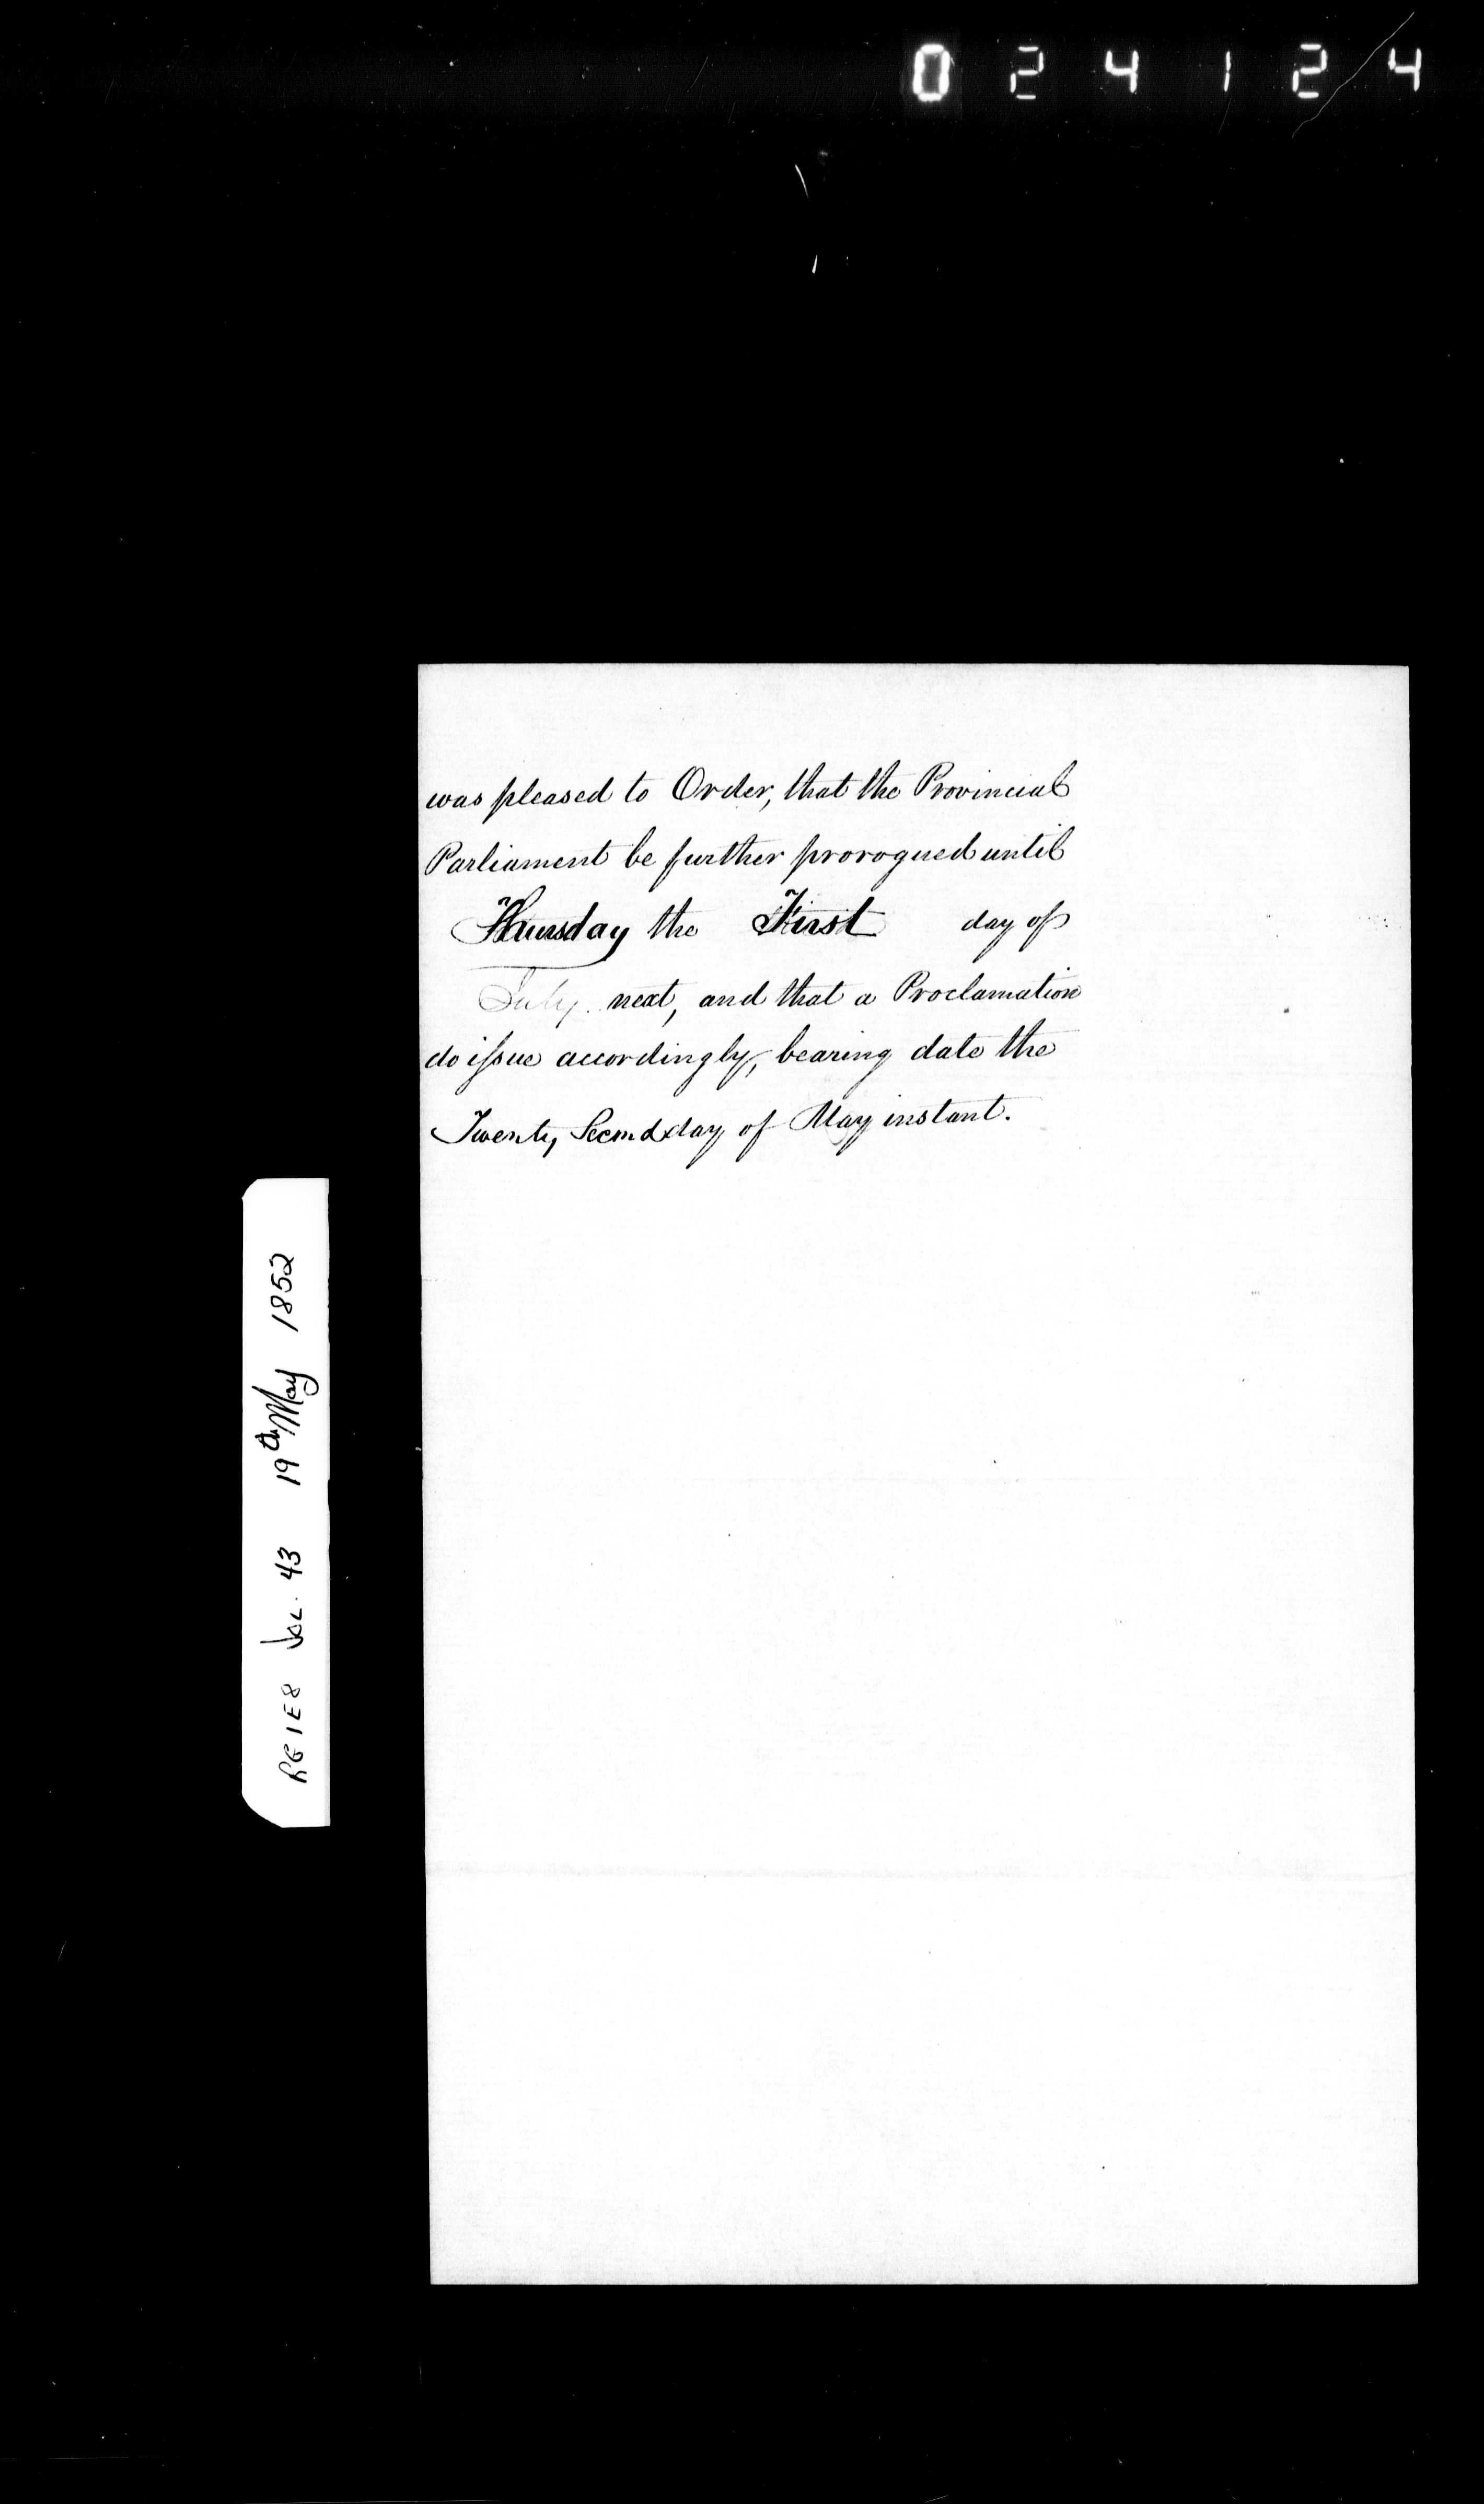 024124
was pleased to Order, that the Provincial
Parliament be further prorogued until
Thursday the First day of
July next, and that a Proclamation
do issue accordingly, bearing date the
Twenty Second day of May instant.
RG1E8 Vol. 43 19th May 1852